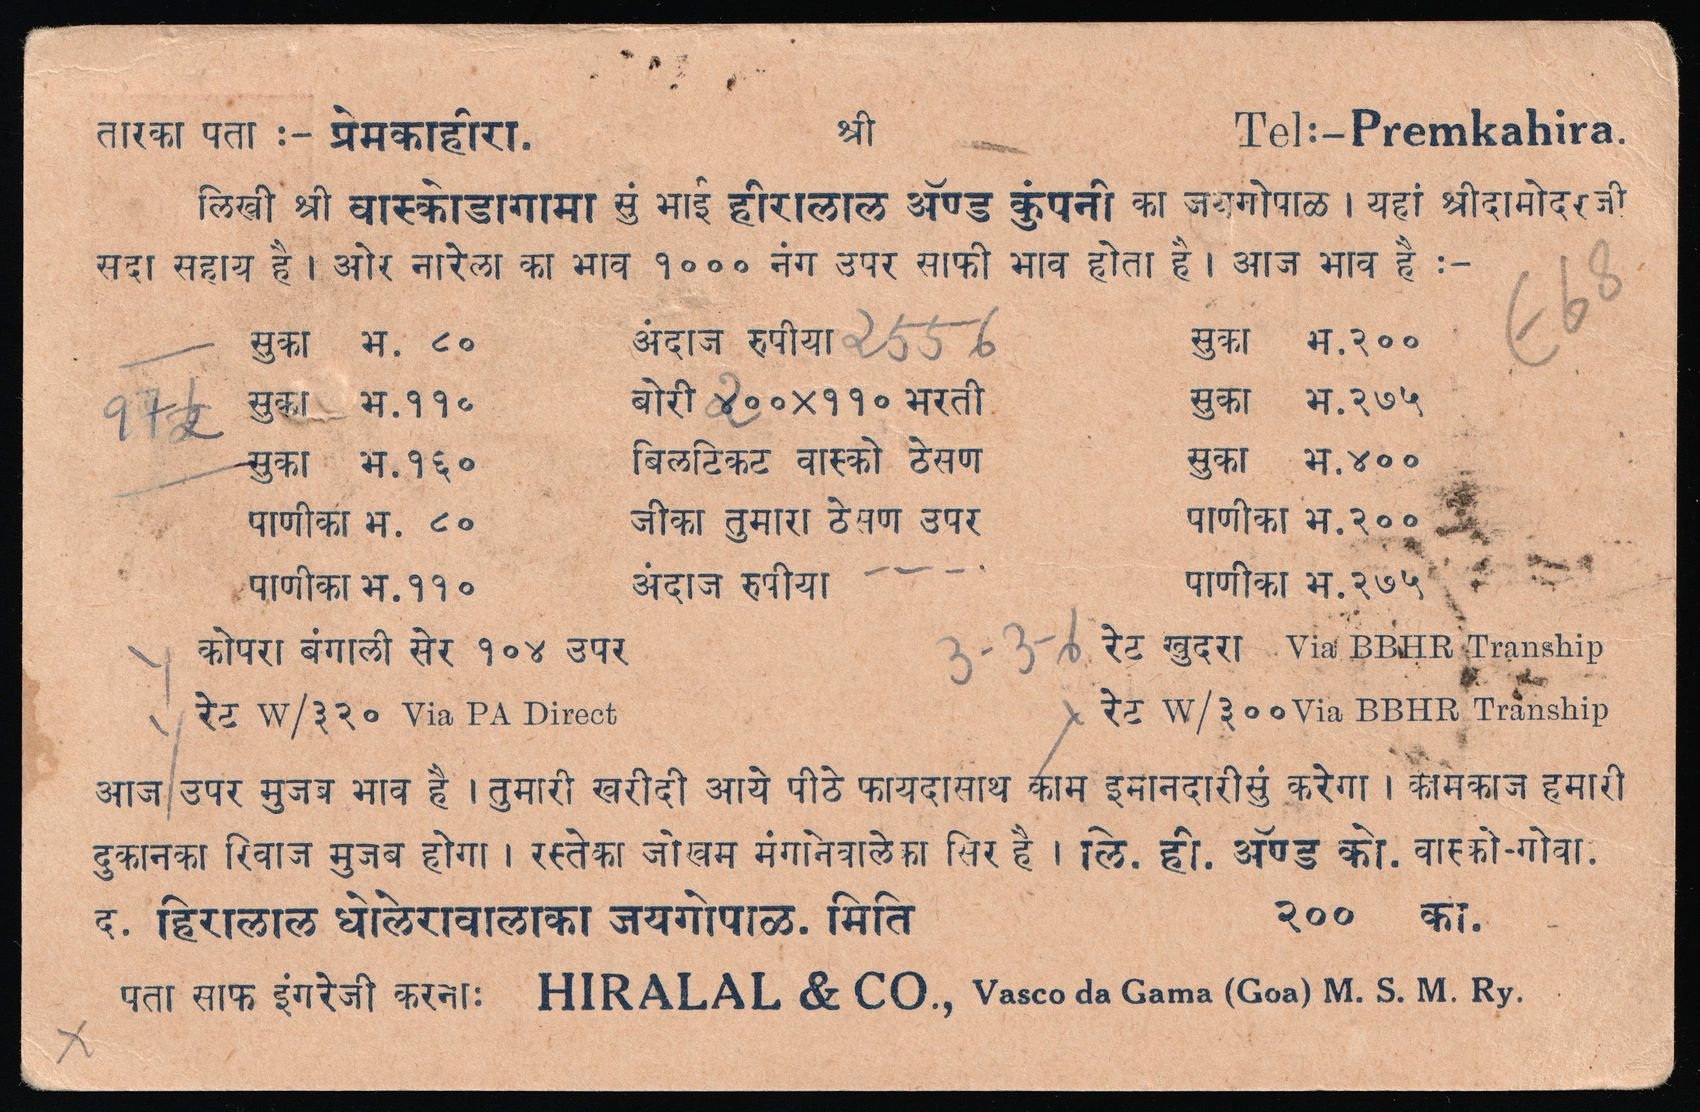 तारका पता :– प्रेमकाहीरा. श्री Tel:–Premkahira.
लिखी श्री वास्कोडागामा सुं भाई हीरालाल ॲण्ड कुंपनी का जयगोपाळ । यहां श्रीदामोदरजी
सदा सहाय है । ओर नारेला का भाव १००० नंग उपर साफी भाव होता है । आज भाव है :–
सुका भ. ८० अंदाज रुपीया 2556 सुका भ.२००
सुका भ.११० बोरी ४००×११० भरती सुका भ.२७५
सुका भ.१६० बिलटिकट वास्को ठेसण सुका भ.४००
पाणीका भ. ८० जीका तुमारा ठेसण उपर पाणीका भ.२००
पाणीका भ.११० अंदाज रुपीया ---- पाणीका भ.२७५
कोपरा बंगाली सेर १०४ उपर 3-3-6 रेट खुदरा Via BBHR Tranship
रेट W/३२० Via PA Direct रेट W/३०० Via BBHR Tranship
आज उपर मुजब भाव है । तुमारी खरीदी आये पीठे फायदासाथ काम इमानदारीसुं करेगा । कामकाज हमारी
दुकानका रिवाज मुजब होगा । रस्तेका जोखम मंगानेवालेका सिर है । लि. ही. ॲण्ड को. वास्को-गोवा.
द. हिरालाल धोलेरावालाका जयगोपाळ. मिति २०० का.
पता साफ इंगरेजी करनाः HIRALAL & CO., Vasco da Gama (Goa) M. S. M. Ry.